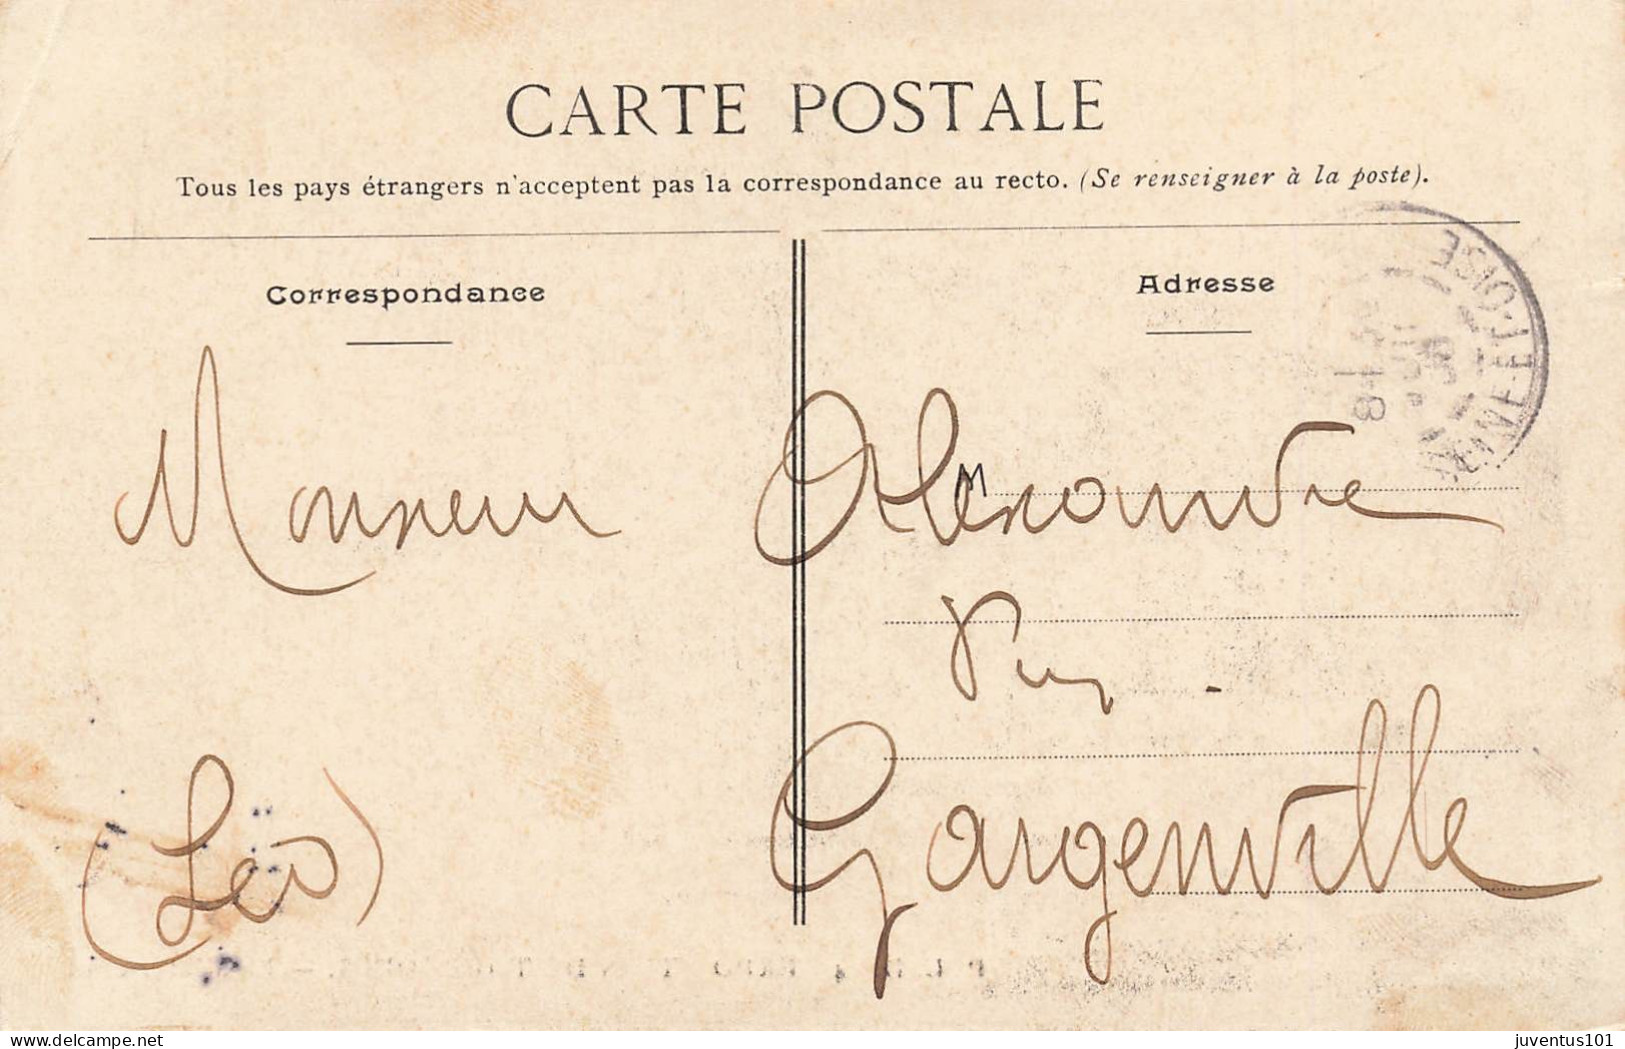 CARTE POSTALE
Tous les pays étrangers n'acceptent pas la correspondance au recto. (Se renseigner à la poste).
Correspondance
Adresse
SEINE-ET-OISE
Monsieur Alexandre
Gargenville
(Léo)
delcampe.net
juventus101